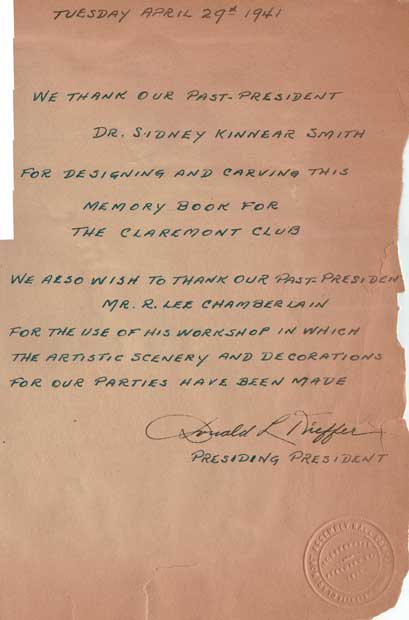 TUESDAY APRIL 29th 1941
WE THANK OUR PAST-PRESIDENT
DR. SIDNEY KINNEAR SMITH
FOR DESIGNING AND CARVING THIS
MEMORY BOOK FOR
THE CLAREMONT CLUB
WE ALSO WISH TO THANK OUR PAST-PRESIDEN
MR. R. LEE CHAMBERLAIN
FOR THE USE OF HIS WORKSHOP IN WHICH
THE ARTISTIC SCENERY AND DECORATIONS
FOR OUR PARTIES HAVE BEEN MADE
Donald L.
PRESIDING PRESIDENT